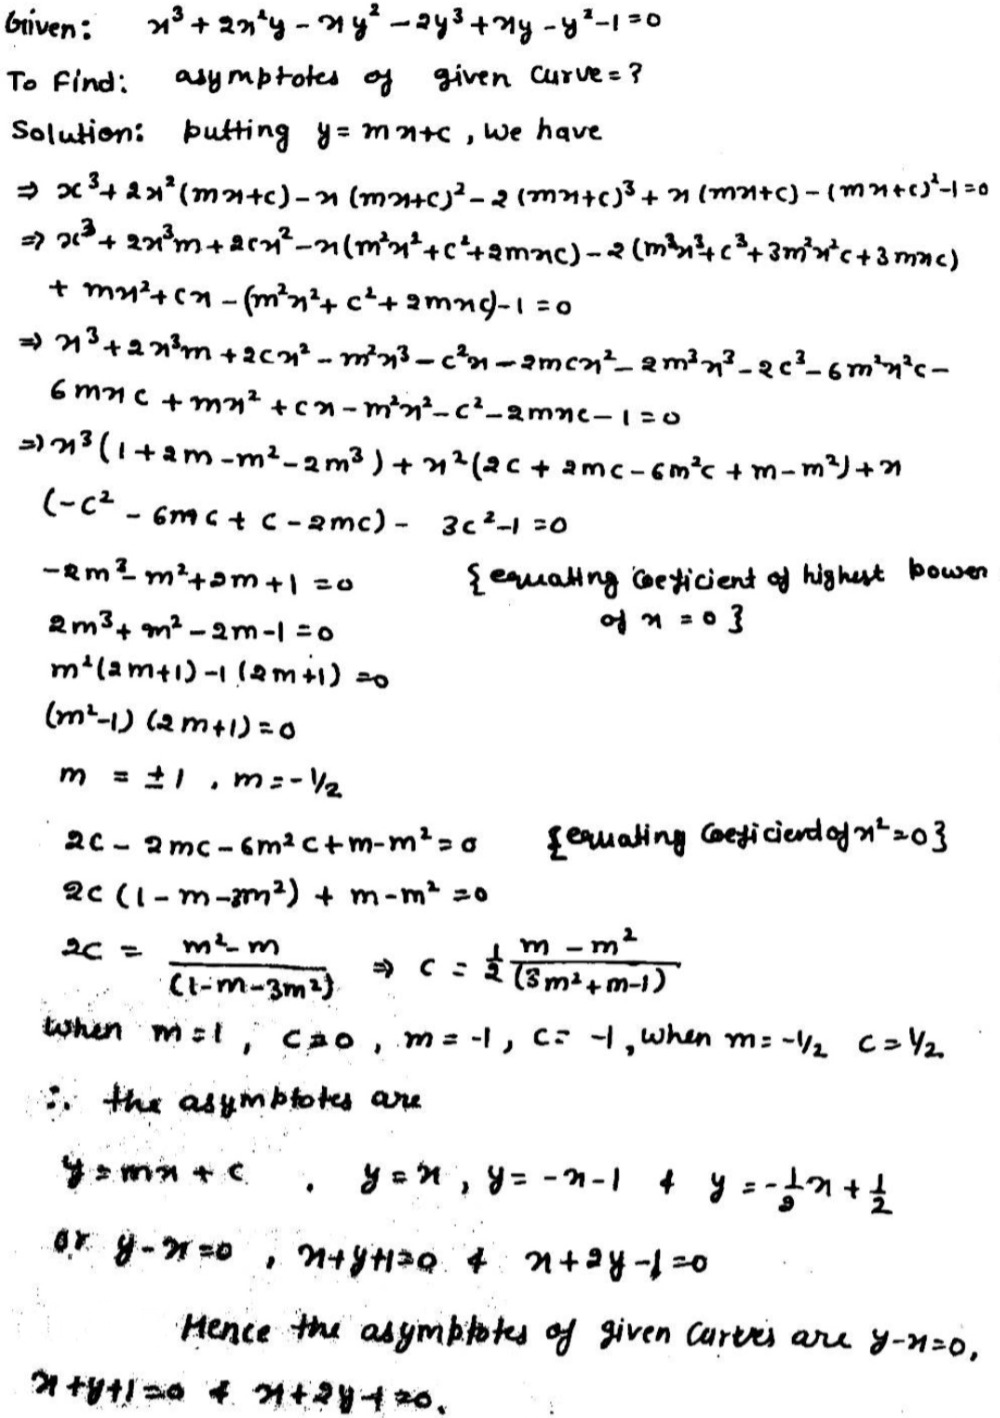 Given: x³ + 2x²y - xy² - 2y³ + xy - y² - 1 = 0
To Find: asymptotes of given curve = ?
Solution: putting y = mx+c , we have
⇒ x³ + 2x²(mx+c) - x(mx+c)² - 2(mx+c)³ + x(mx+c) - (mx+c)² - 1 = 0
⇒ x³ + 2x³m + 2cx² - x(m²x² + c² + 2mxc) - 2(m³x³ + c³ + 3m²x²c + 3mxc)
+ mx² + cx - (m²x² + c² + 2mxc) - 1 = 0
⇒ x³ + 2x³m + 2cx² - m²x³ - c²x - 2mcx² - 2m³x³ - 2c³ - 6m²x²c -
6mxc + mx² + cx - m²x² - c² - 2mxc - 1 = 0
⇒ x³(1 + 2m - m² - 2m³) + x²(2c + 2mc - 6m²c + m - m²) + x
(-c² - 6mc + c - 2mc) - 3c² - 1 = 0
-2m³ - m² + 2m + 1 = 0 {equating coeficient of highest power
of x = 0}
2m³ + m² - 2m - 1 = 0
m²(2m+1) - 1(2m+1) = 0
(m²-1)(2m+1) = 0
m = ±1 , m = -1/2
2c - 2mc - 6m²c + m - m² = 0 {equating coeficient of x² = 0}
2c(1 - m - 3m²) + m - m² = 0
2c = (m² - m)/(1-m-3m²) ⇒ c = 1/2 (m - m²)/(3m²+m-1)
when m = 1 , c = 0 , m = -1 , c = -1 , when m = -1/2 c = 1/2
∴ the asymptotes are
y = mx + c . y = x , y = -x-1 & y = -1/2x + 1/2
or y - x = 0 , x+y+1 = 0 & x+2y-1 = 0
Hence the asymptotes of given curves are y-x=0,
x+y+1=0 & x+2y-1=0.